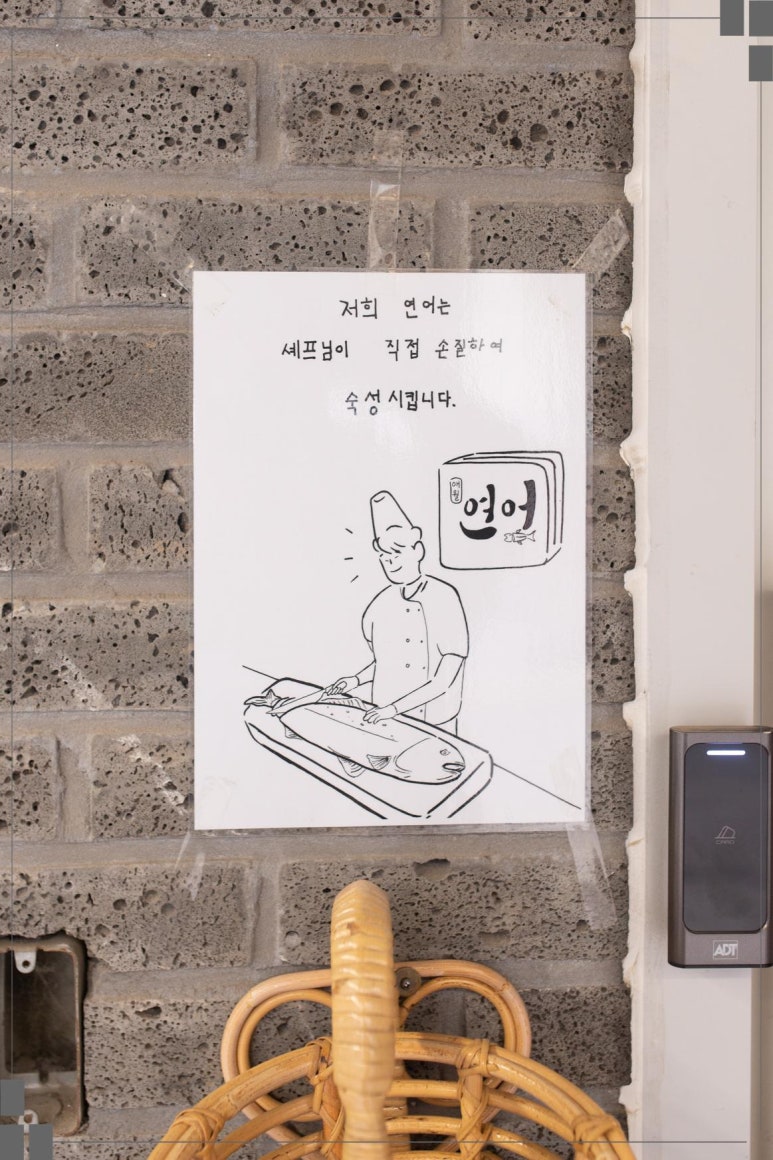 저희 연어는
셰프님이 직접 손질하여
숙성 시킵니다.
애월
연어
CARD
ADT